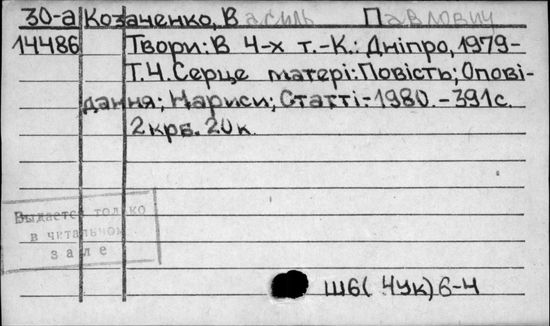 30-а Козаченко, Василь Павлович
14486 Твори: В 4-х т.-К.: Дніпро, 1979-
Т.4. Серце матері: Повість; Опові-
дання; Нариси; Статті.-1980.-391с.
2 крб. 20к.
Выдается только
в читальном
зале
Ш6(4Ук)6-4